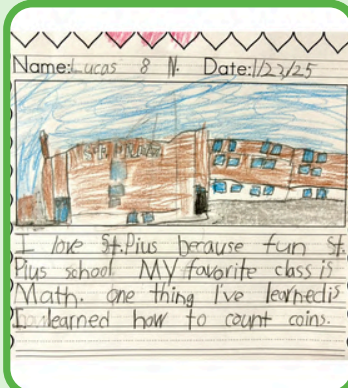 Name: Lucas 8 N. Date: 1/23/25
I love St.Pius because fun St.
Pius school MY favorite class is
Math. one thing I've learnedis
I learned how to count coins.